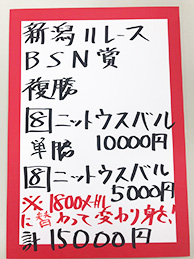 新潟11レース
BSN賞
複勝
8 ニットウスバル
10000円
単勝
8 ニットウスバル
5000円
※1800メートル
に替わって変わり身を!
計15000円